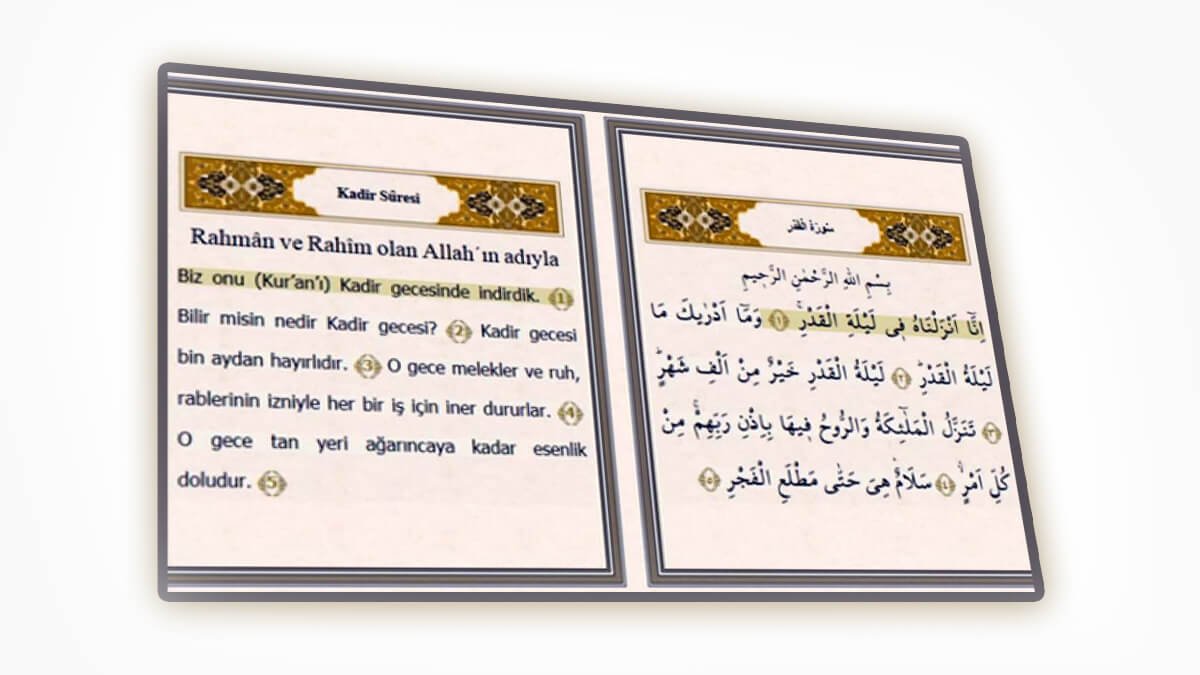 Kadir Sûresi
Rahmân ve Rahîm olan Allah´ın adıyla
Biz onu (Kur’an’ı) Kadir gecesinde indirdik. ﴾1﴿
Bilir misin nedir Kadir gecesi? ﴾2﴿ Kadir gecesi
bin aydan hayırlıdır. ﴾3﴿ O gece melekler ve ruh,
rablerinin izniyle her bir iş için iner dururlar. ﴾4﴿
O gece tan yeri ağarıncaya kadar esenlik
doludur. ﴾5﴿
سُورَةُ الْقَدْرِ
بِسْمِ اللّٰهِ الرَّحْمٰنِ الرَّح۪يمِ
اِنَّٓا اَنْزَلْنَاهُ ف۪ي لَيْلَةِ الْقَدْرِۚ ﴿١﴾ وَمَٓا اَدْرٰيكَ مَا
لَيْلَةُ الْقَدْرِۜ ﴿٢﴾ لَيْلَةُ الْقَدْرِ خَيْرٌ مِنْ اَلْفِ شَهْرٍۜ
﴿٣﴾ تَنَزَّلُ الْمَلٰٓئِكَةُ وَالرُّوحُ ف۪يهَا بِاِذْنِ رَبِّهِمْۚ مِنْ
كُلِّ اَمْرٍۙ ﴿٤﴾ سَلَامٌ۠ هِيَ حَتّٰى مَطْلَعِ الْفَجْرِ ﴿٥﴾